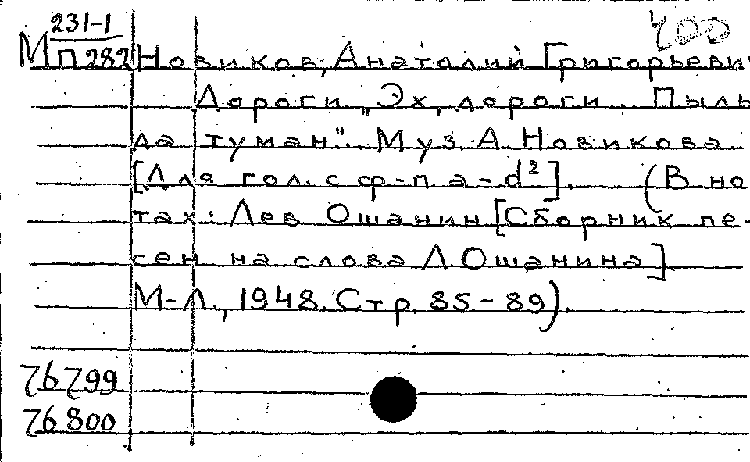 231-1
400
М П282 Новиков, Анатолий Григорьеви
Дороги „Эх, дороги.. Пыль
да туман". Муз. А. Новикова
[Для гол. с ф-п. a-d²]. (В но-
тах: Лев Ошанин [Сборник пе-
сен на слова Л Ошанина]
М-Л., 1948. Стр. 85-89).
76799
76800